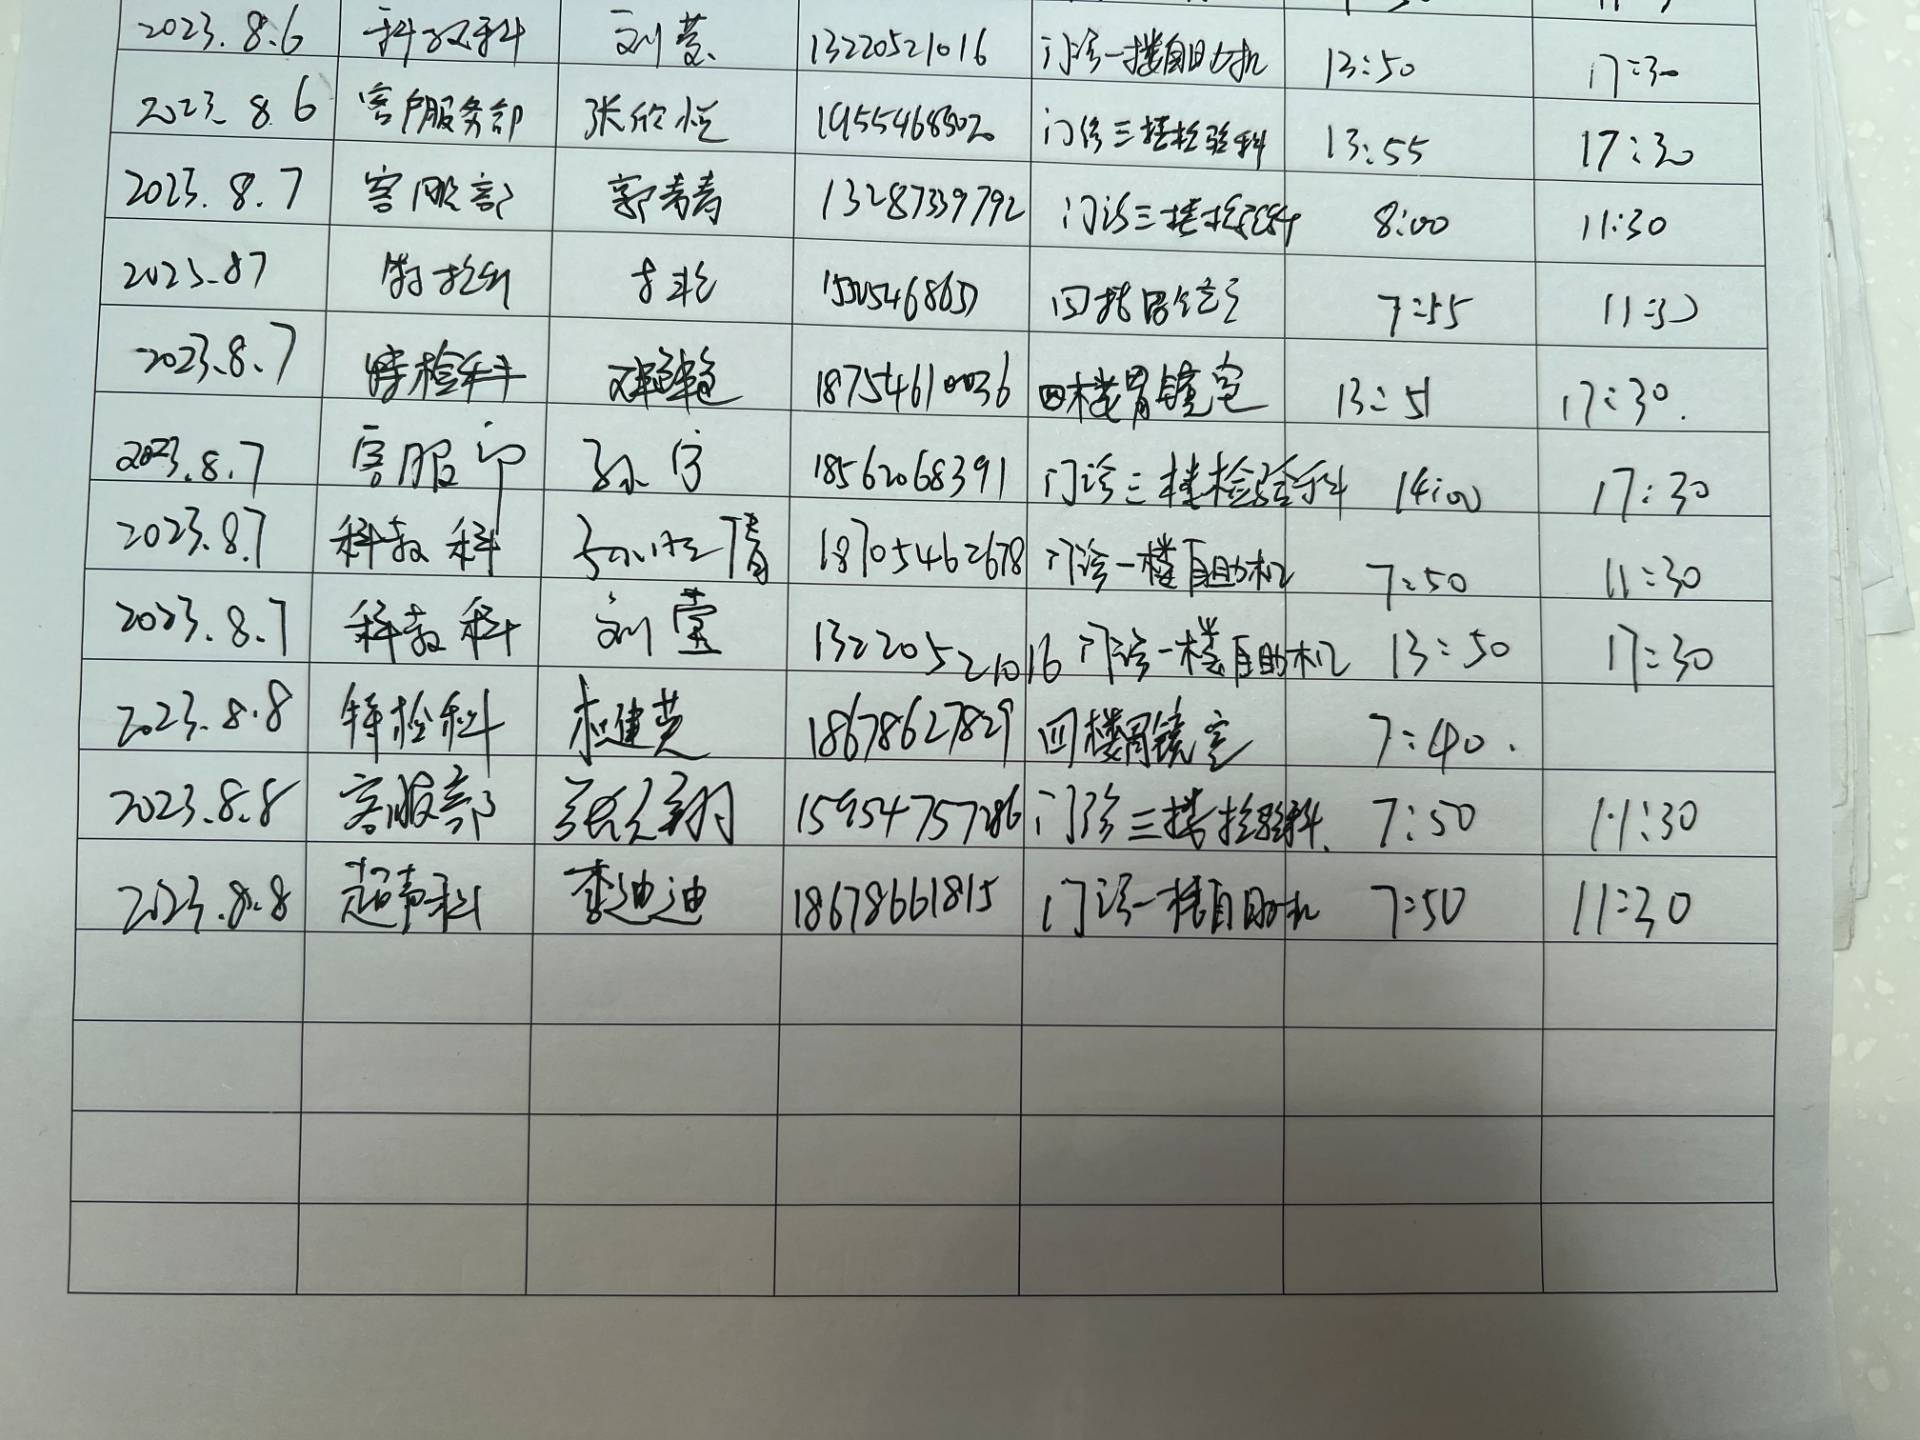 2023.8.6 科教科 刘莹 13220521016 门诊一楼自助机 13:50 17:30
2023.8.6 客户服务部 张欣悦 门诊三楼检验科 13:55 17:30
2023.8.7 客服部 郭青青 13287339792 门诊三楼检验科 8:00 11:30
2023.8.7 特检科 四楼胃镜室 7:55 11:30
2023.8.7 特检科 18754610036 四楼胃镜室 13:51 17:30.
2023.8.7 客服部 18562068391 门诊三楼检验科 14:00 17:30
2023.8.7 科教科 18705462678 门诊一楼自助机 7:50 11:30
2023.8.7 科教科 刘莹 13220521016 门诊一楼自助机 13:50 17:30
2023.8.8 特检科 18678627829 四楼胃镜室 7:40.
2023.8.8 客服部 15954757286 门诊三楼检验科. 7:50 11:30
2023.8.8 超声科 李迪迪 18678661815 门诊一楼自助机 7:50 11:30